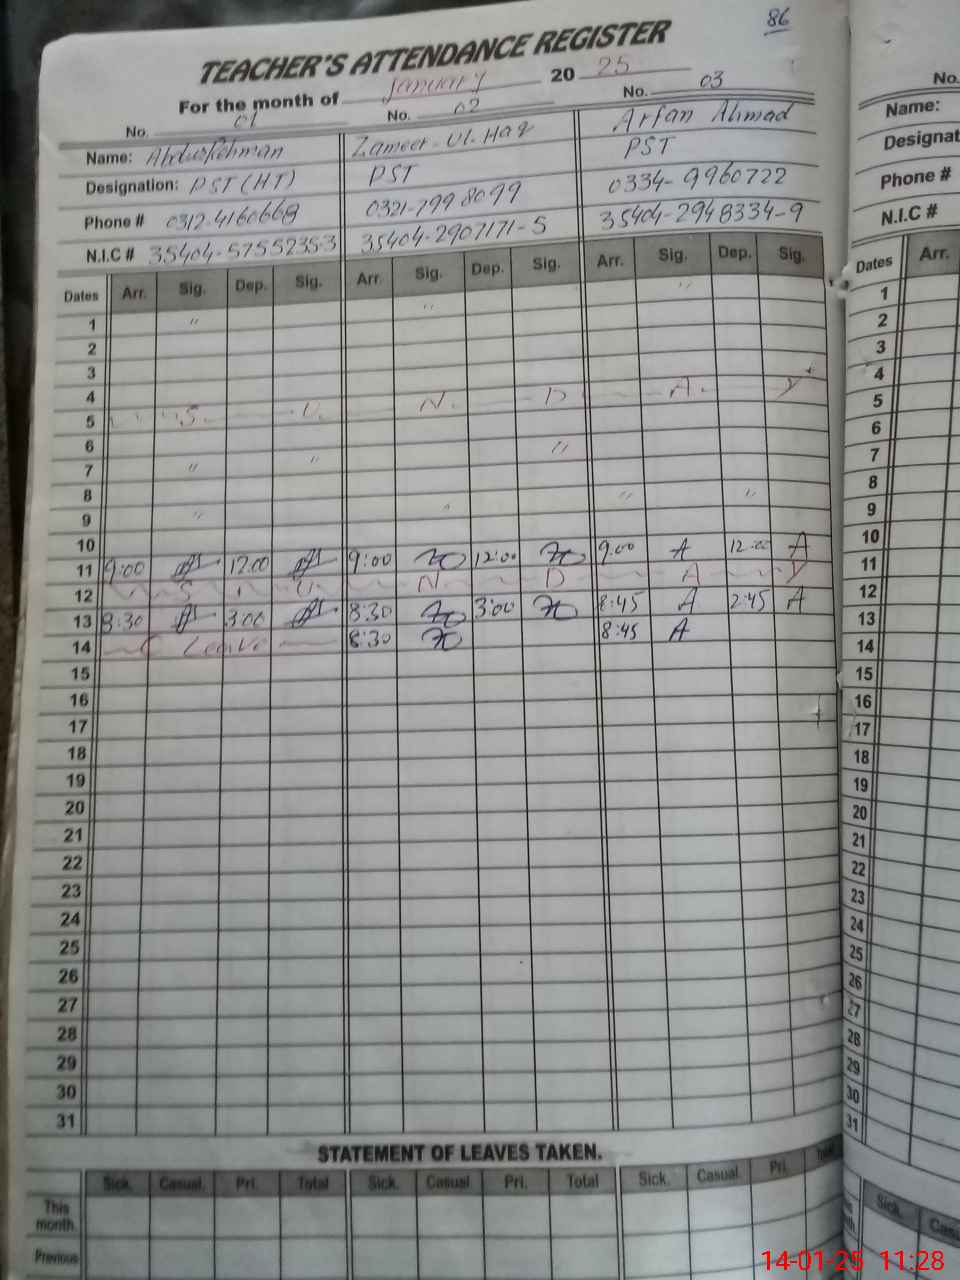 86
TEACHER'S ATTENDANCE REGISTER
For the month of January 20 25
No. 01 No. 02 No. 03
Name: Zameer-Ul-Haq Arfan Ahmad
Designation: PST (HT) PST PST
Phone # 0312-4160668 0321-7998099 0334-9960722
N.I.C # 35404-5755235-3 35404-2907171-5 35404-2948334-9
Dates Arr. Sig. Dep. Sig. Arr. Sig. Dep. Sig. Arr. Sig. Dep. Sig.
1 " " "
2
3
4
5 S. U. N. D A. Y
6
7 " " "
8
9 " " "
10
11 9:00 12:00 9:00 12:00 9:00 A 12:00 A
12 S U N D A Y
13 8:30 3:00 8:30 3:00 8:45 A 2:45 A
14 C Leave 8:30 8:45 A
15
16
17
18
19
20
21
22
23
24
25
26
27
28
29
30
31
STATEMENT OF LEAVES TAKEN.
Sick. Casual. Pri. Total Sick. Casual Pri. Total Sick. Casual. Pri.
This month.
Previous
No.
Name:
Designat
Phone #
N.I.C #
Dates Arr.
1
2
3
4
5
6
7
8
9
10
11
12
13
14
15
16
17
18
19
20
21
22
23
24
25
26
27
28
29
30
31
Sick.
14-01-25 11:28